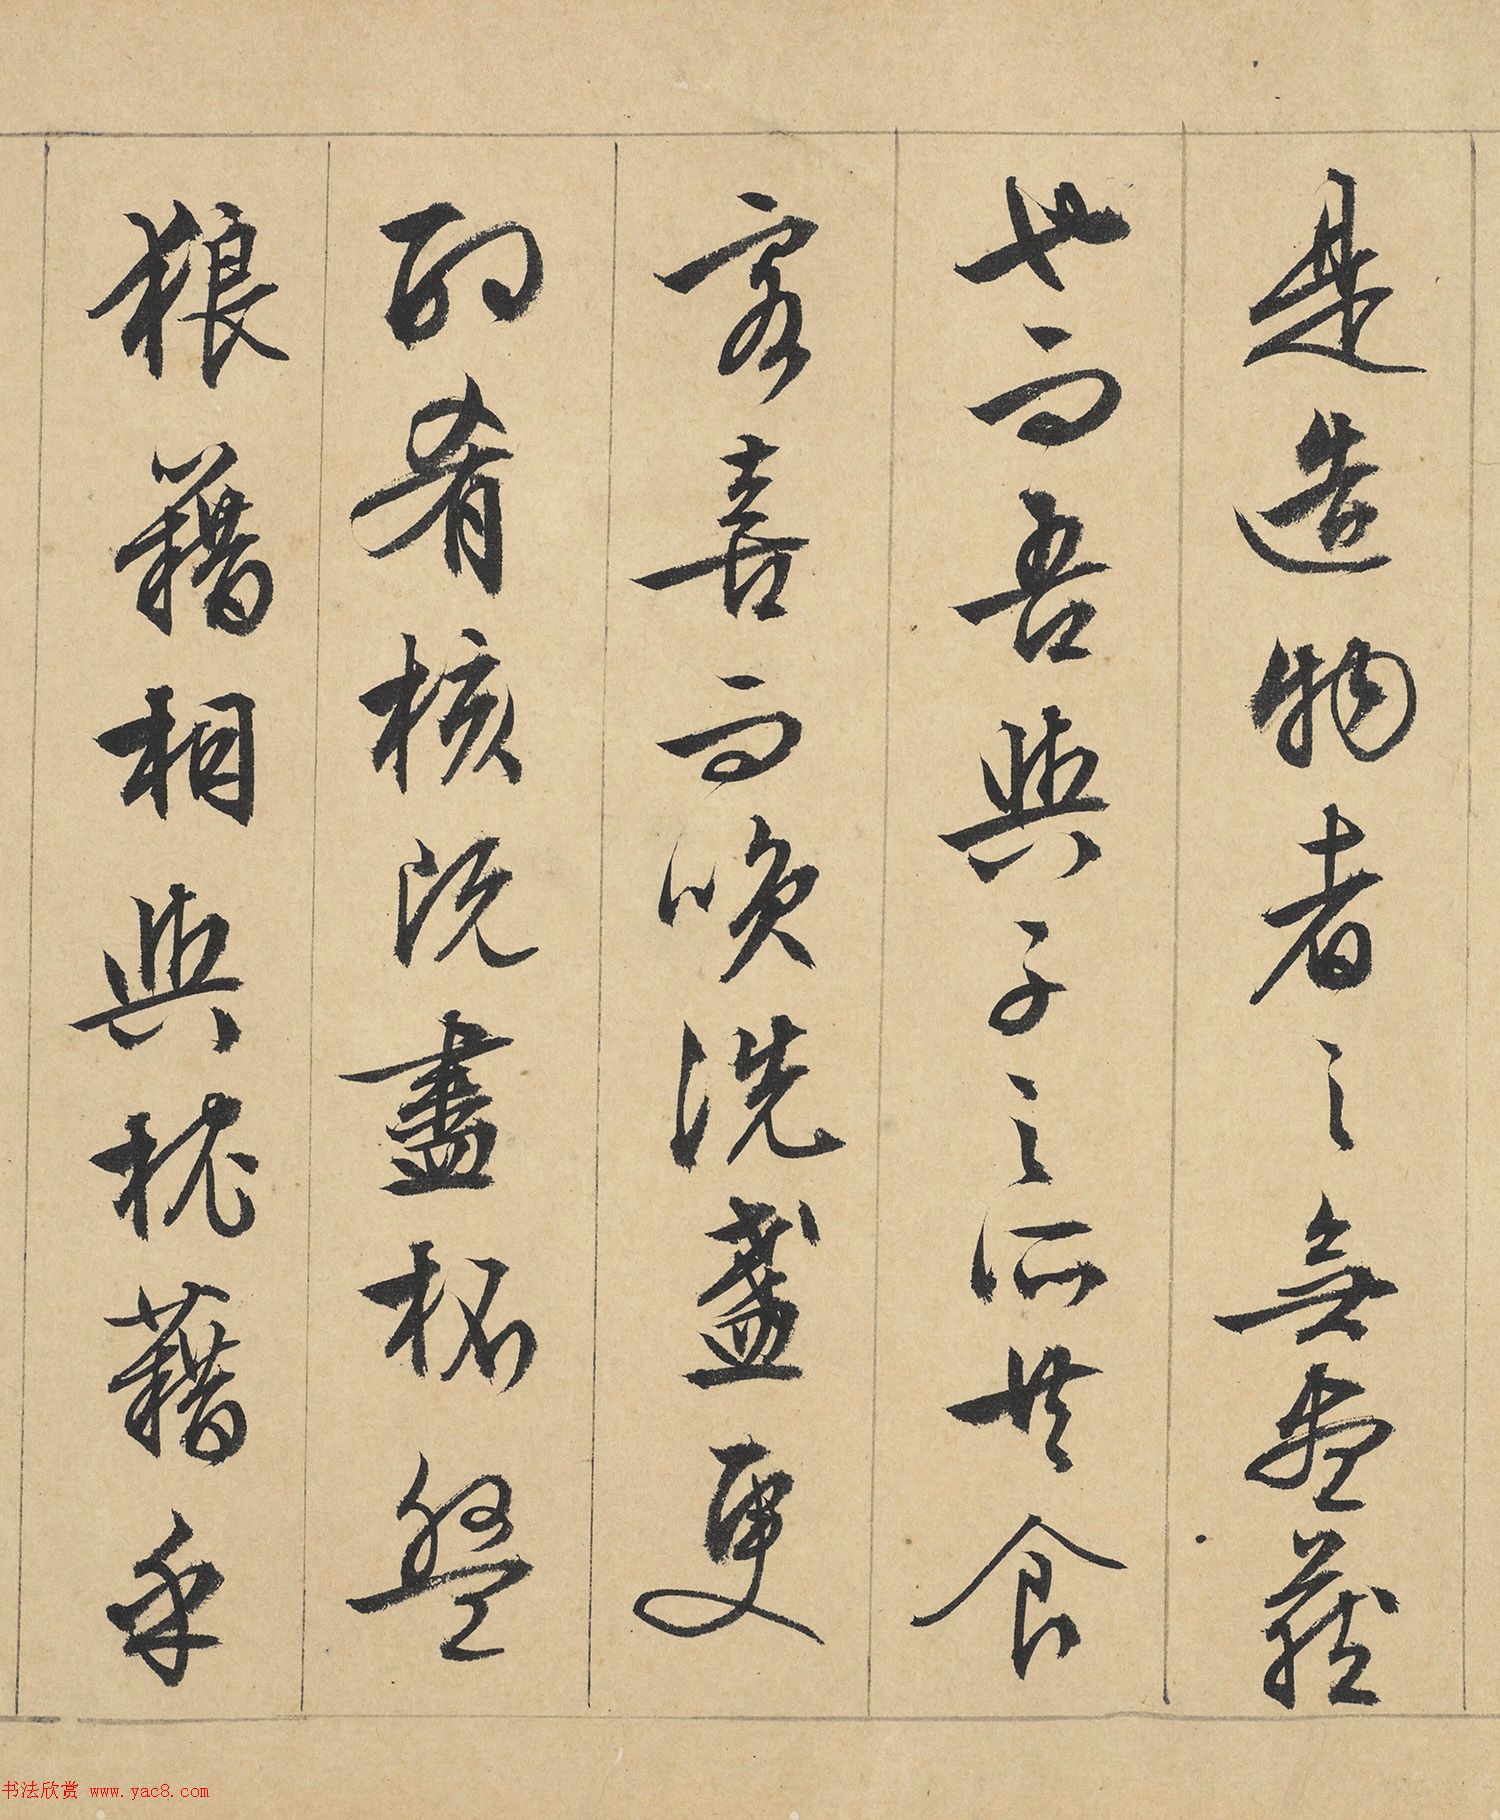 是造物者之無盡藏
也而吾與子之所共食
客喜而喚洗盞更
酌肴核既盡杯盤
狼藉相與枕藉乎
书法欣赏 www.yac8.com